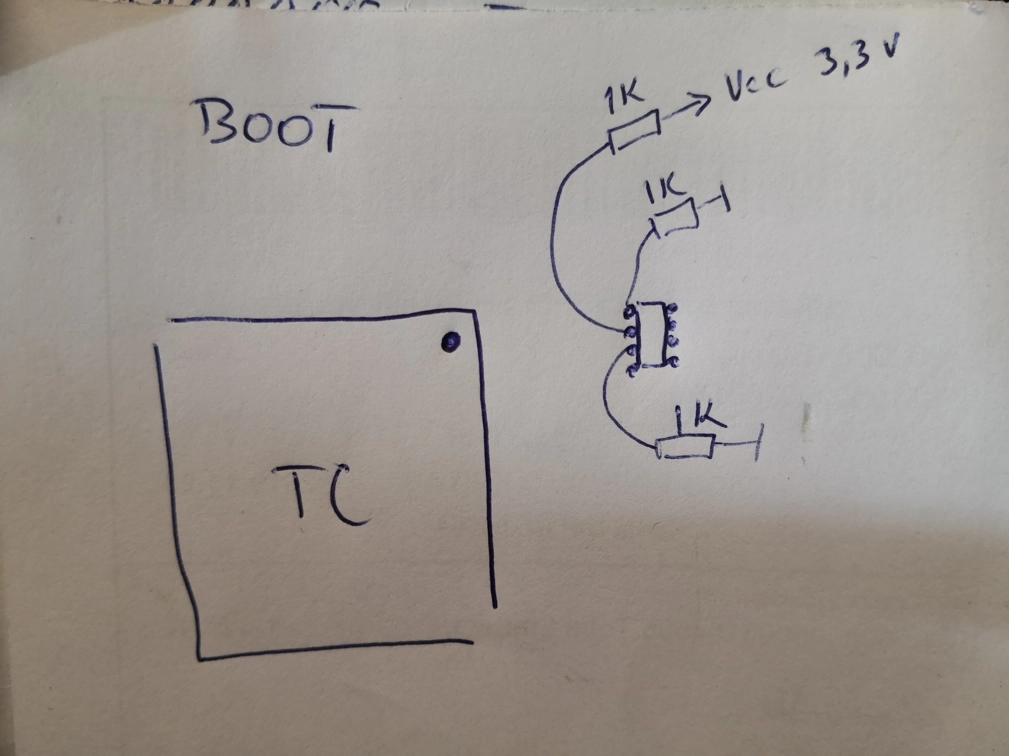 1K → Vcc 3,3 V
BOOT
1K
1K
TC